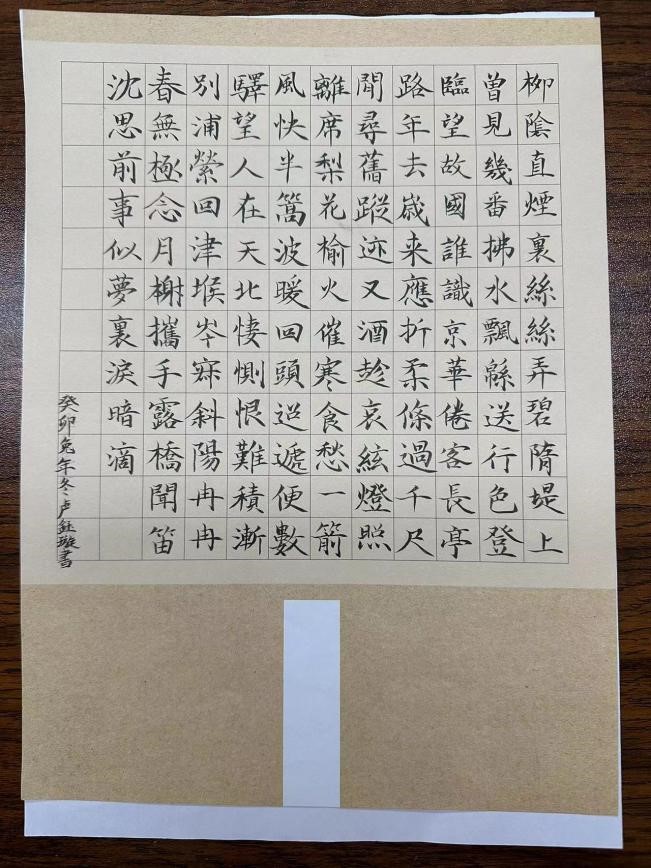 柳隂直煙裏絲絲弄碧隋堤上
曽見幾番拂水飄緜送行色登
臨望故國誰識京華倦客長亭
路年去歲来應折柔條過千尺
閒尋舊蹤迹又酒趁哀絃燈照
離席梨花榆火催寒食愁一箭
風快半篙波暖回頭迢遞便數
驛望人在天北悽惻恨難積漸
別浦縈回津堠岑寂斜陽冉冉
春無極念月榭攜手露橋聞笛
沈思前事似夢裏淚暗滴
癸卯兔年冬卢鈺璇書